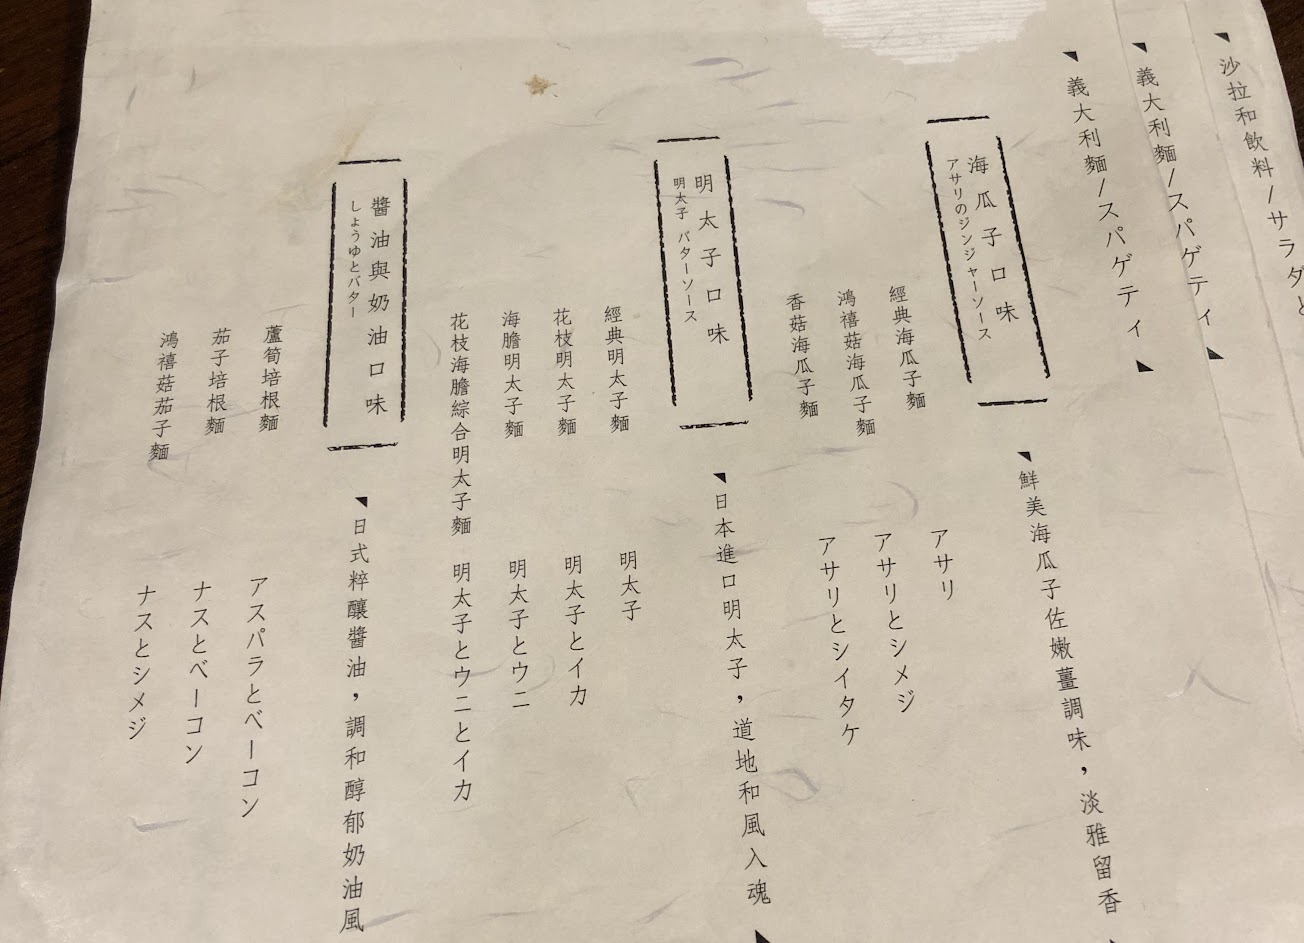 沙拉和飲料/サラダと
義大利麵/スパゲティ
義大利麵/スパゲティ
海瓜子口味
アサリのジンジャーソース
鮮美海瓜子佐嫩薑調味，淡雅留香
經典海瓜子麵 アサリ
鴻禧菇海瓜子麵 アサリとシメジ
香菇海瓜子麵 アサリとシイタケ
明太子口味
明太子 バターソース
日本進口明太子，道地和風入魂
經典明太子麵 明太子
花枝明太子麵 明太子とイカ
海膽明太子麵 明太子とウニ
花枝海膽綜合明太子麵 明太子とウニとイカ
醬油與奶油口味
しょうゆとバター
日式粹釀醬油，調和醇郁奶油風
蘆筍培根麵 アスパラとベーコン
茄子培根麵 ナスとベーコン
鴻禧菇茄子麵 ナスとシメジ